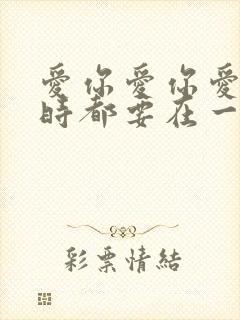 愛你愛你愛
時都要在一
彩票情結